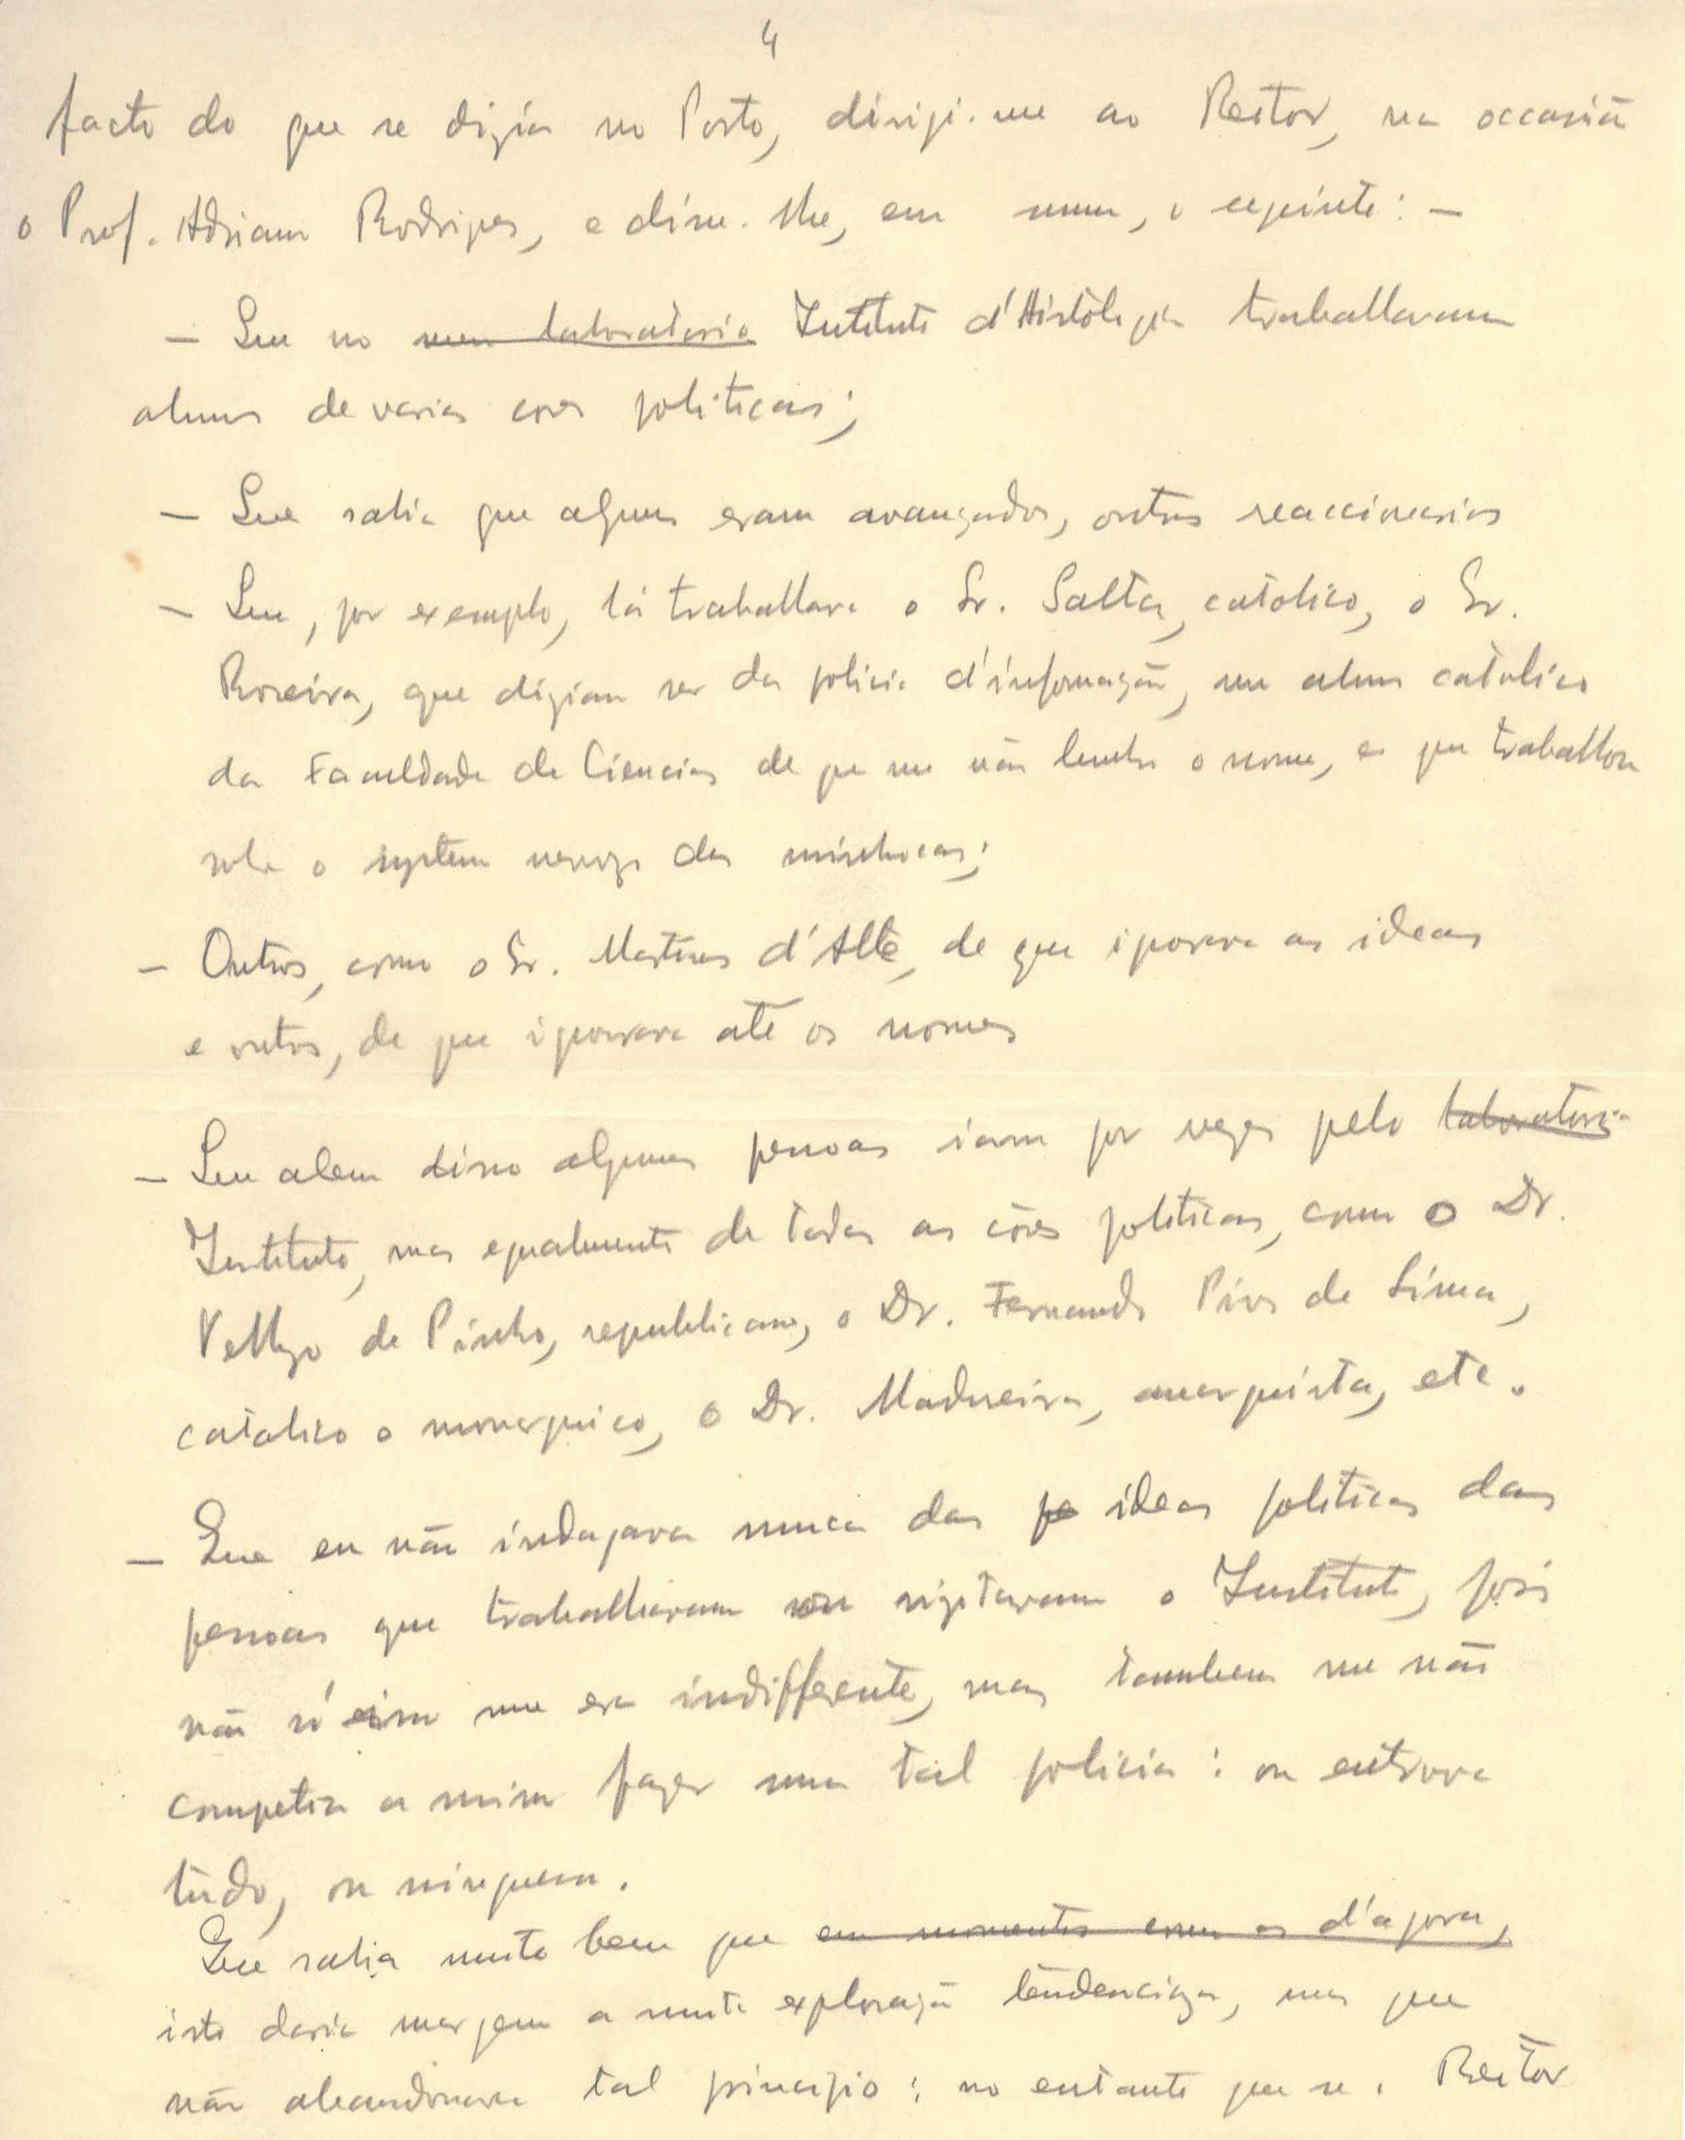 4
facto do que se dizia no Porto, dirigi-me ao Reitor, na occasião
o Prof. Adriano Rodrigues, e disse-lhe, em summa, o seguinte: —
— Que no meu laboratorio Instituto d'Histologia trabalhavam
alunos de varias cores politicas;
— Que sabia que alguns eram avançados, outros reaccionarios
— Que, por exemplo, lá trabalhava o Sr. Salta, catolico, o Sr.
Roseira, que diziam ser da policia d'informação, um aluno catolico
da Faculdade de Ciencias de que me não lembra o nome, e que trabalhou
sobre o systema nervoso das minhocas;
— Outros, como o Sr. Martins d'Alte, de que ignorava as ideas
e outros, de que ignorava até os nomes
— Que alem disso algumas pessoas iam por vezes pelo laboratorio
Instituto, mas egualmente de todas as côres politicas, como o Dr.
Velloso de Pinho, republicano, o Dr. Fernando Pires de Lima,
catolico e monarquico, o Dr. Madureira, anarquista, etc.
— Que eu não indagava nunca das pe ideas politicas das
pessoas que trabalhavam ou visitavam o Instituto, pois
não só isso me era indifferente, mas tambem me não
competia a mim fazer uma tal policia: ou entrava
tudo, ou ninguem.
Que sabia muito bem que em momentos como os d'agora,
isto daria margem a muita exploração tendenciosa, mas que
não abandonava tal principio: no entanto que se o Reitor